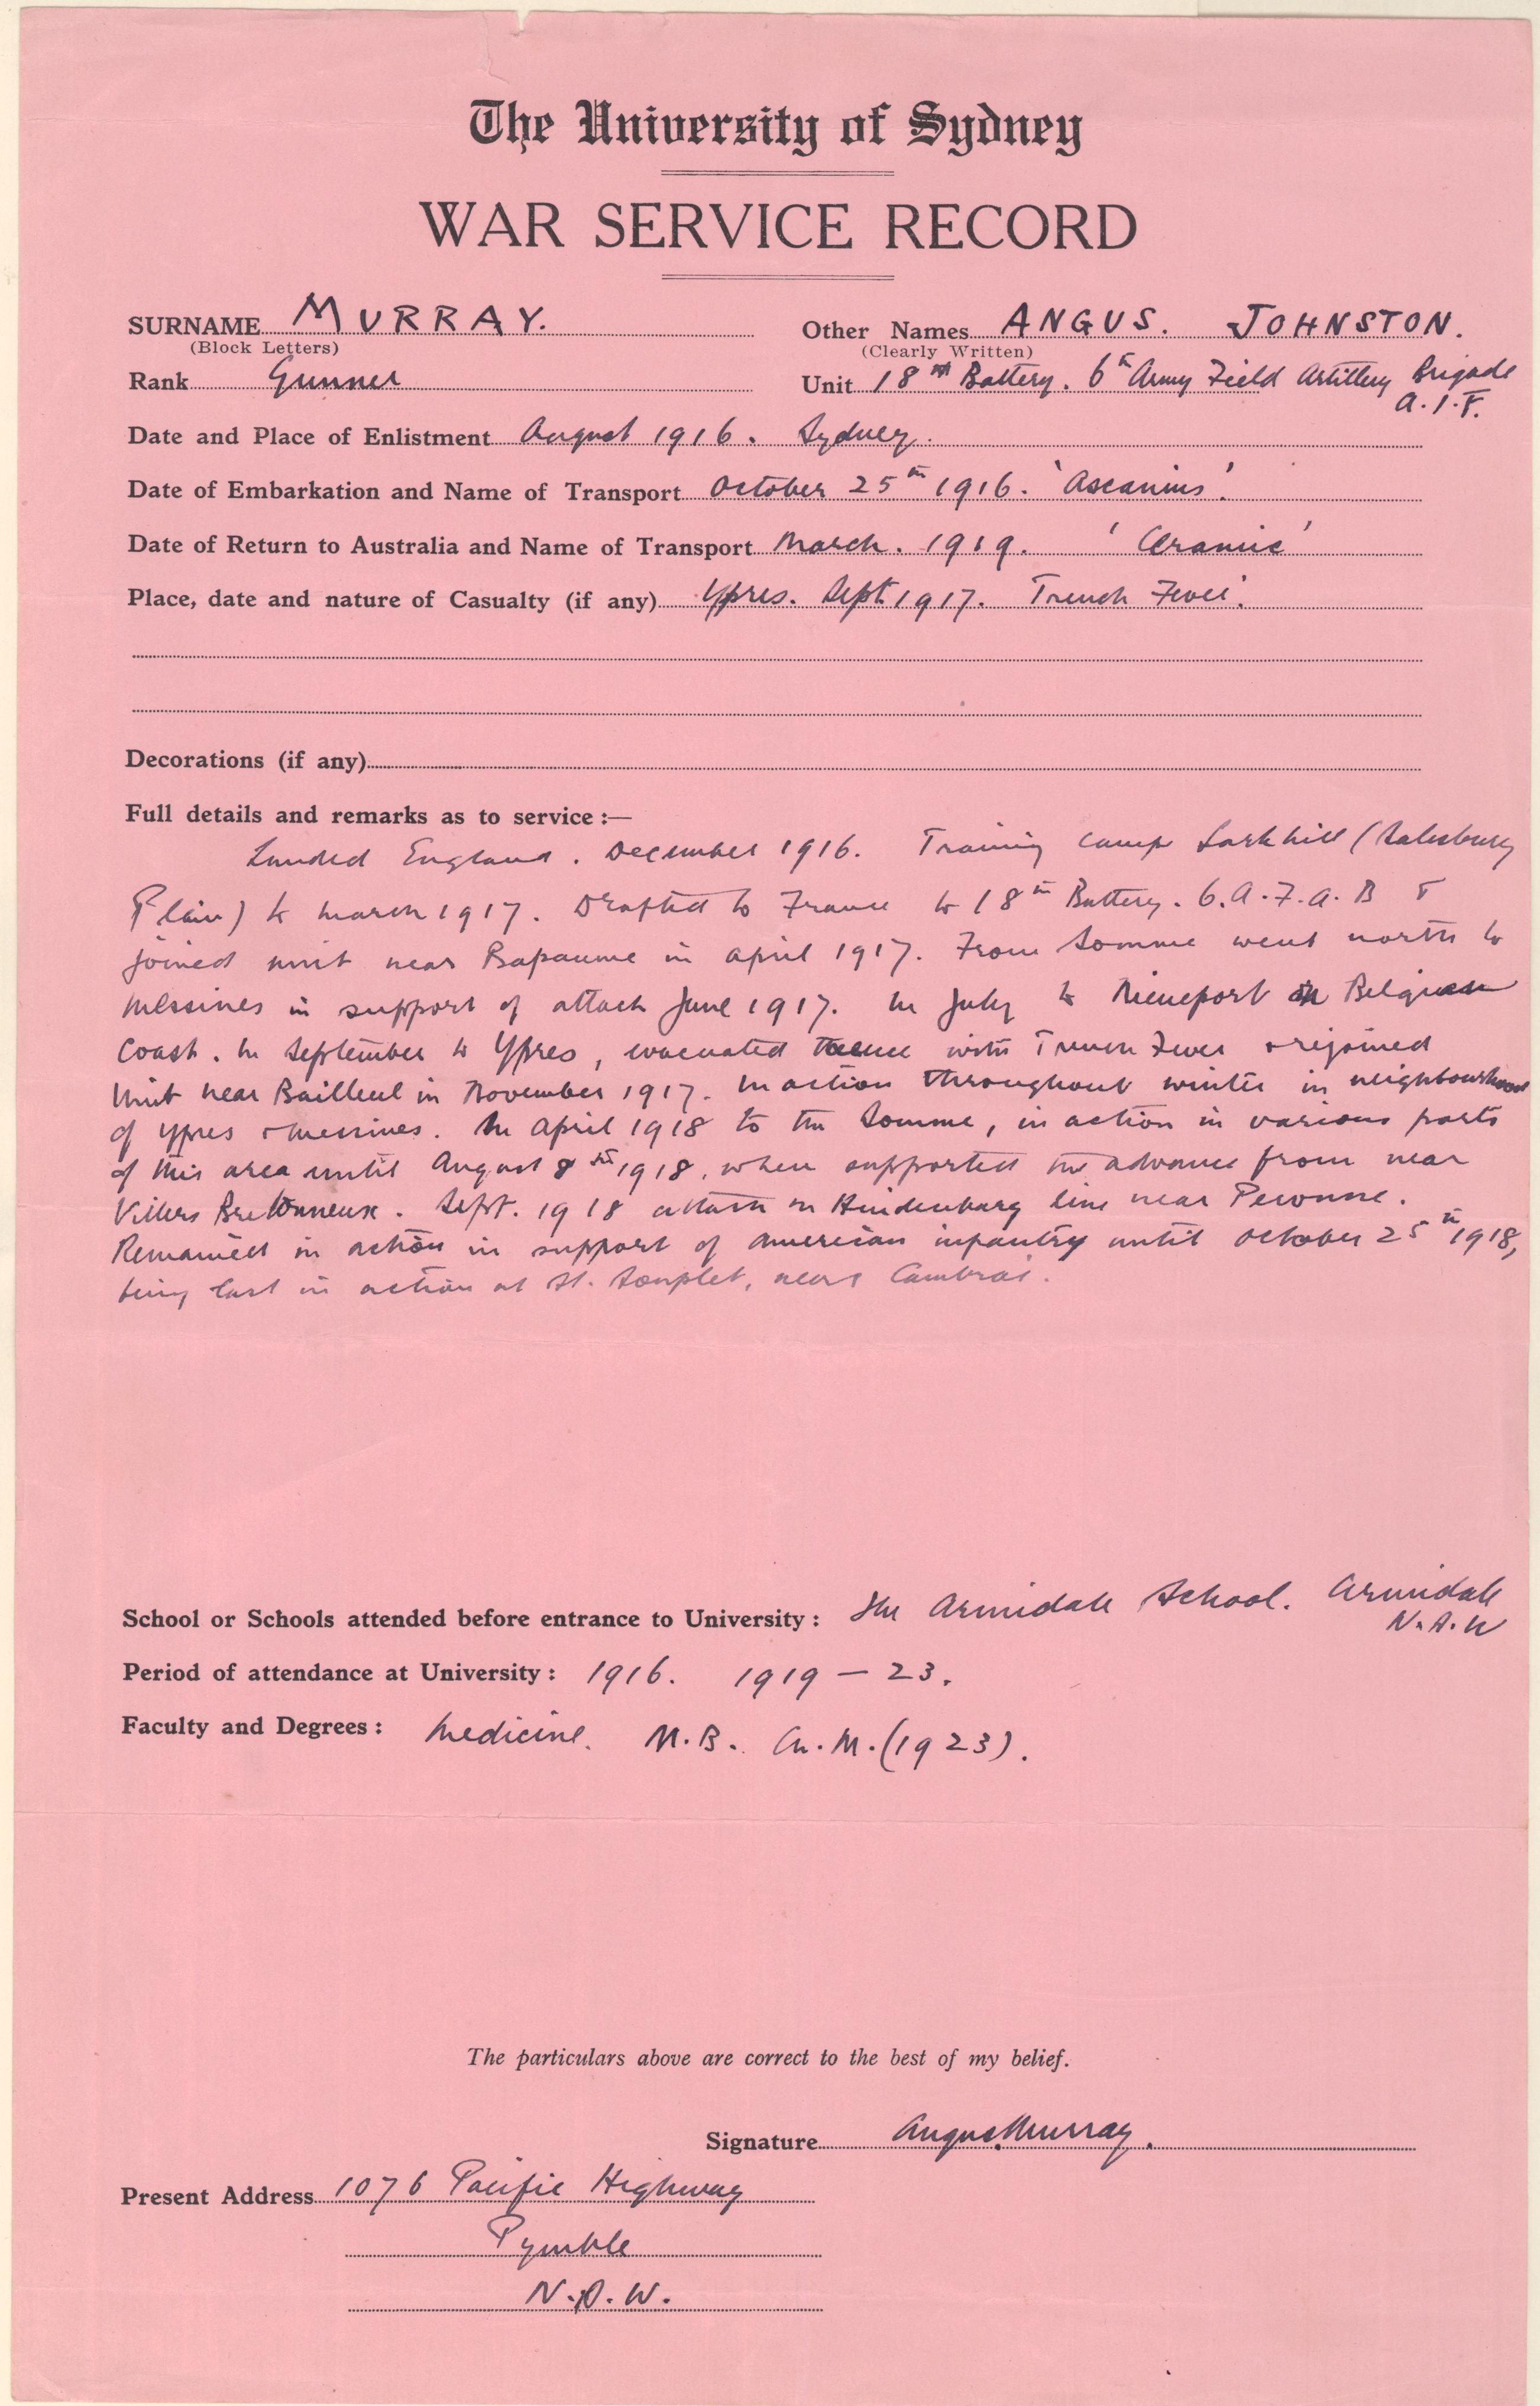 The University of Sydney
WAR SERVICE RECORD
SURNAME MURRAY. Other Names ANGUS. JOHNSTON.
(Block Letters) (Clearly Written)
Rank Gunner Unit 18th Battery. 6th Army Field Artillery Brigade
A.I.F.
Date and Place of Enlistment August 1916. Sydney.
Date of Embarkation and Name of Transport October 25th 1916. 'Ascanius'.
Date of Return to Australia and Name of Transport March. 1919. 'Ceramic'
Place, date and nature of Casualty (if any) Ypres. Sept. 1917. Trench Fever.
Decorations (if any)
Full details and remarks as to service :—
Landed England. December 1916. Training camp Larkhill (Salesbury
Plain) to March 1917. Drafted to France to 18th Battery. 6.A.F.A.B &
joined unit near Bapaume in April 1917. From Somme went north to
Messines in support of attack June 1917. In July to Nieueport on Belgian
Coast. In September to Ypres, evacuated thence with Trench Fever & rejoined
Unit near Bailleul in November 1917. In action throughout winter in neighbourhood
of Ypres & Messines. In April 1918 to the Somme, in action in various parts
of this area until August 8th 1918, when supported the advance from near
Villers Bretonneux. Sept. 1918 attack on Hindenburg line near Peronne.
Remained in action in support of American infantry until October 25th 1918,
being last in action at St. Souplet, near Cambrai.
School or Schools attended before entrance to University : The Armidale School. Armidale
N.S.W
Period of attendance at University : 1916. 1919 – 23.
Faculty and Degrees : Medicine. M.B. Ch.M. (1923).
The particulars above are correct to the best of my belief.
Signature Angus Murray.
Present Address 1076 Pacific Highway
Pymble
N.S.W.